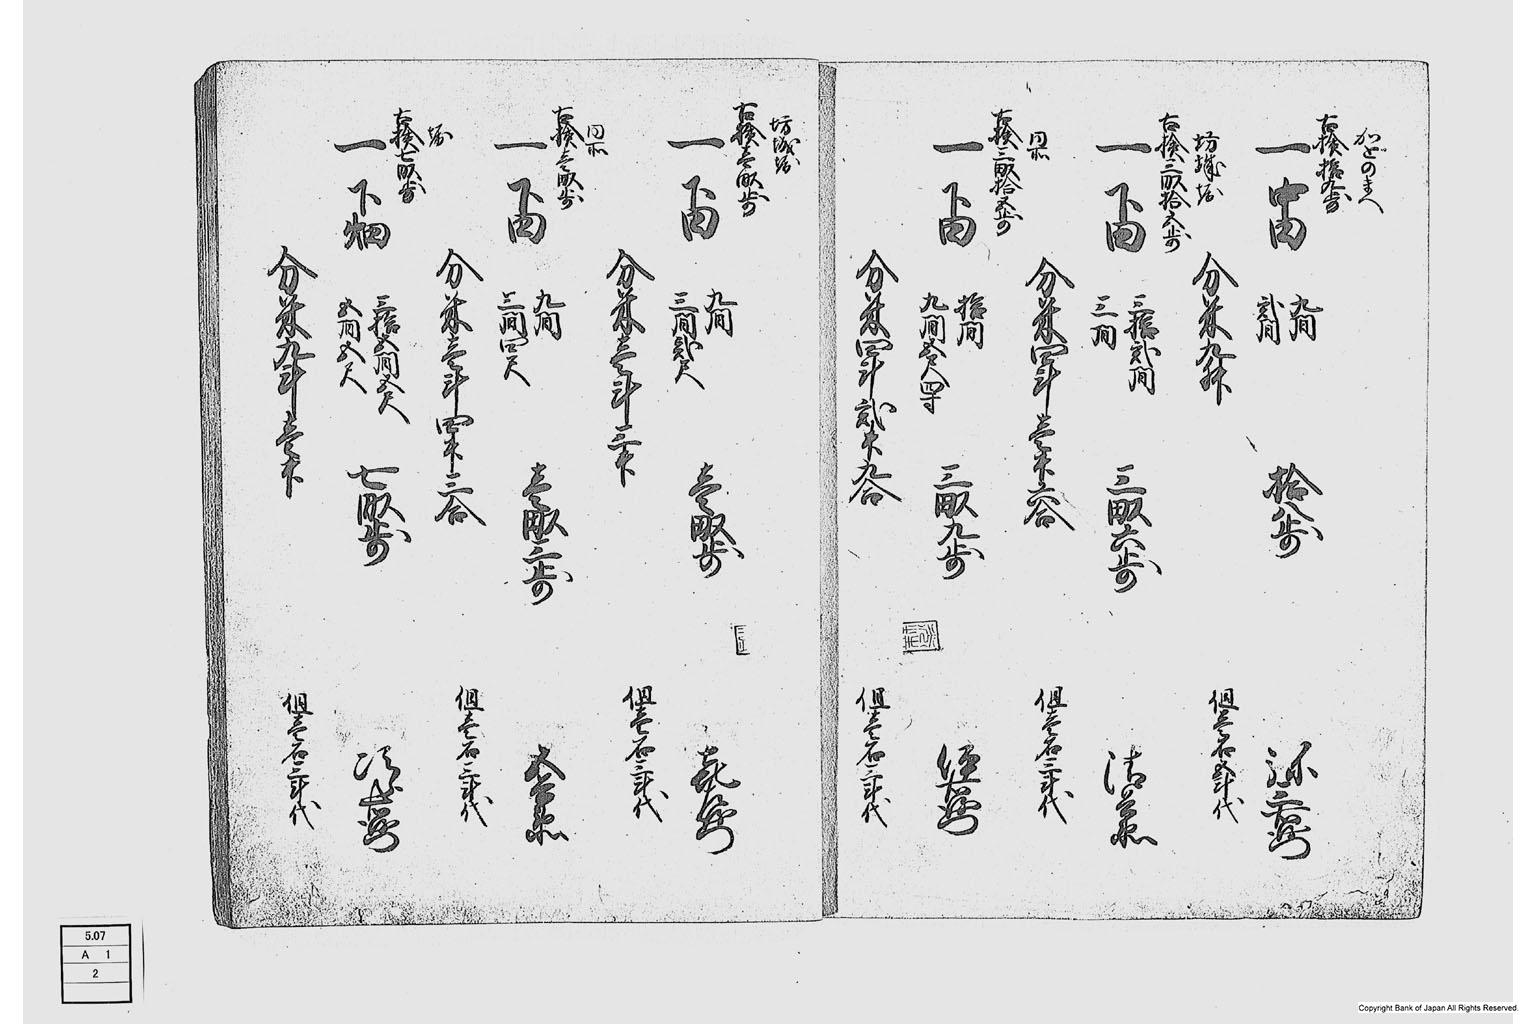 かどのまへ
古検拾九歩
一中田
九間
弐間
拾八歩
分米九升
但壱石五斗代
坊城塚
古検三畝拾五歩
一下田
三拾弐間
三間
三畝六歩
分米四斗壱升六合
但壱石三斗代
同所
古検三畝拾五歩
一下田
拾間
九間五尺四寸
三畝九歩
分米四斗弐升九合
但壱石三斗代
坊城塚
古検壱畝歩
一下田
九間
三間弐尺
壱畝歩
分米壱斗三升
但壱石三斗代
同所
古検壱畝歩
一下田
九間
三間四尺
壱畝三歩
分米壱斗四升三合
但壱石三斗代
古検七畝歩
一下畑
三拾五間五尺
五間五尺
七畝歩
分米九斗壱升
但壱石三斗代
5.07
A 1
2
Copyright Bank of Japan All Rights Reserved.